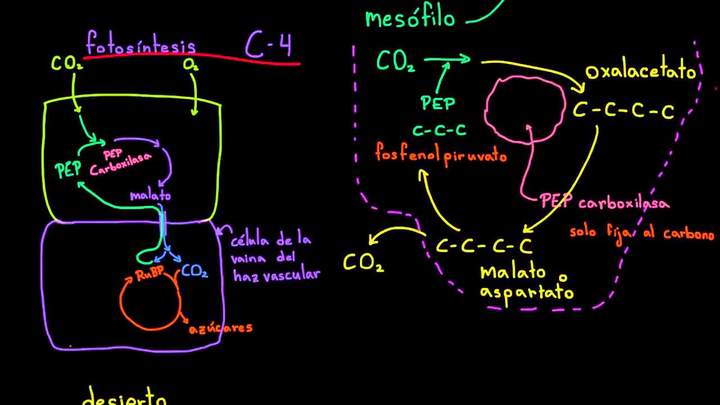 fotosíntesis C-4
CO₂
O₂
PEP
PEP
Carboxilasa
malato
RuBP
CO₂
azúcares
célula de la
vaina del
haz vascular
desierto
mesófilo
CO₂
PEP
C-C-C
fosfenolpiruvato
oxalacetato
C-C-C-C
PEP carboxilasa
solo fija al carbono
C-C-C-C
malato o
aspartato
CO₂